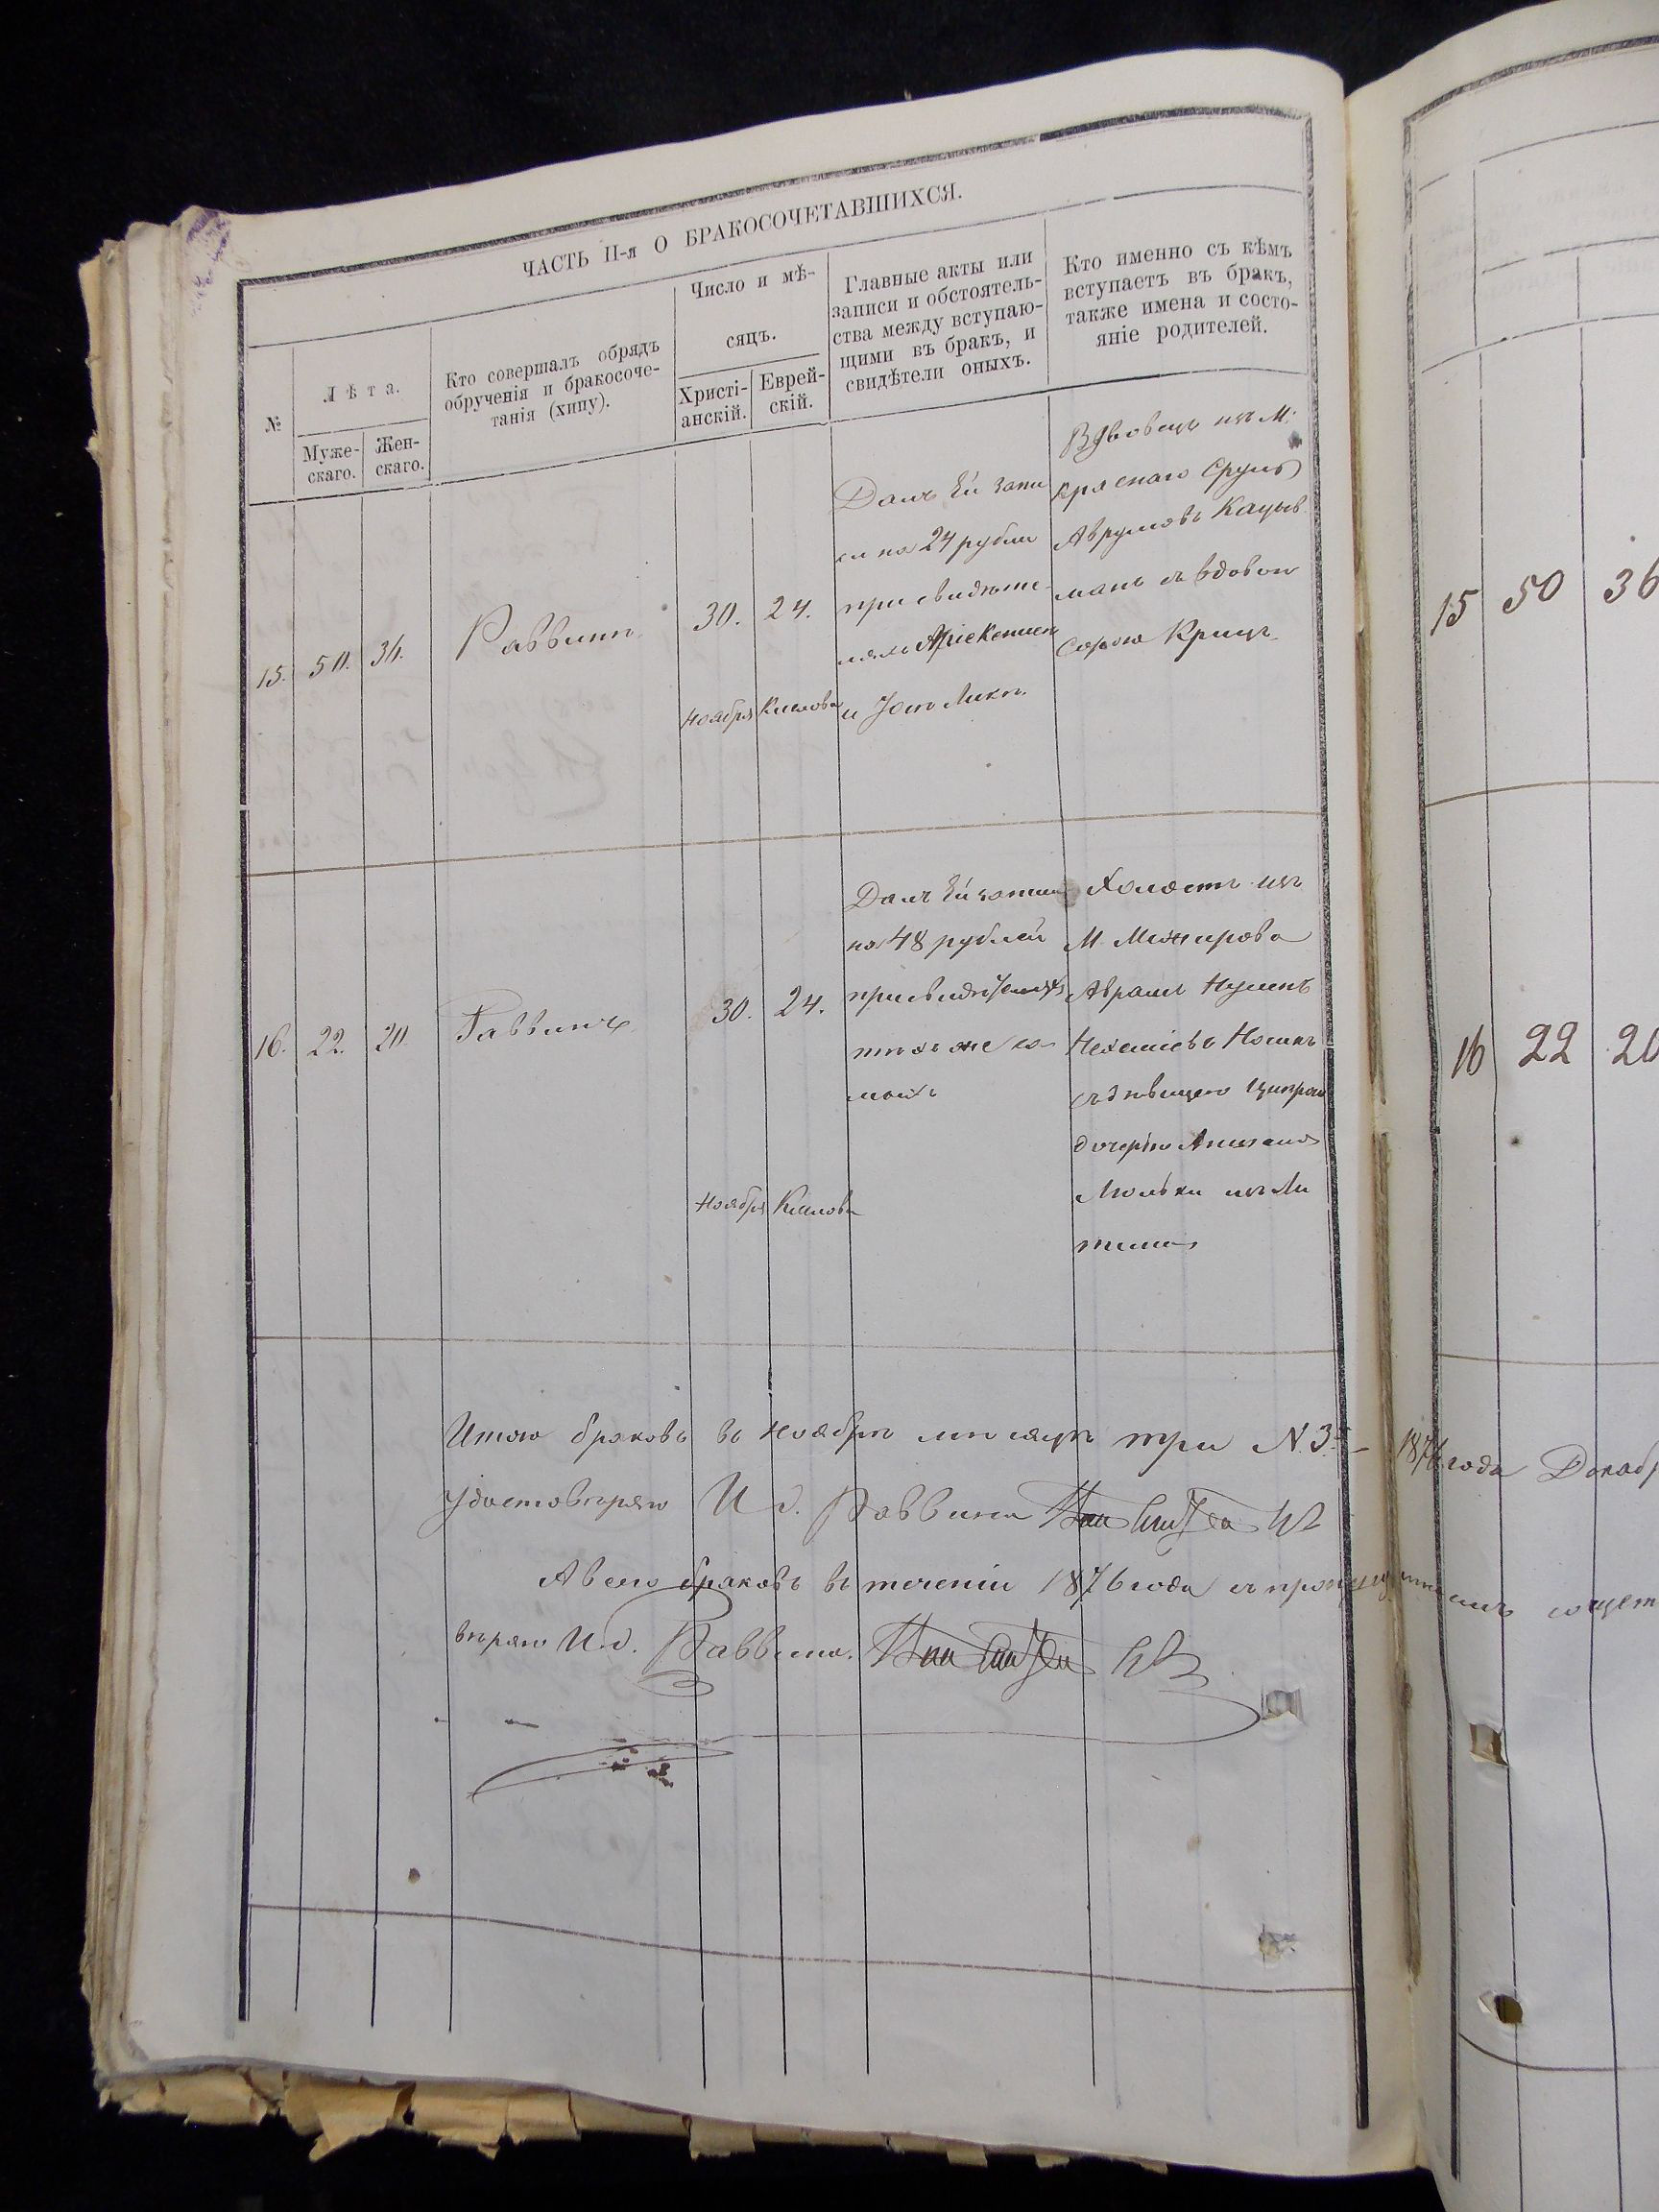 ЧАСТЬ II-я О БРАКОСОЧЕТАВШИХСЯ.
№
Лѣта.
Муже-
скаго.
Жен-
скаго.
Кто совершалъ обрядъ
обрученія и бракосоче-
танія (хипу).
Число и мѣ-
сяцъ.
Христі-
анскій.
Еврей-
скій.
Главные акты или
записи и обстоятель-
ства между вступаю-
щими въ бракъ, и
свидѣтели оныхъ.
Кто именно съ кѣмъ
вступаетъ въ бракъ,
также имена и состо-
яніе родителей.
15.
50.
36.
Раввинъ
30.
Ноября
24.
Кислова
Далъ Ей запи
си на 24 рубли
при свидѣте-
ляхъ
и
Вдовецъ изъ М:
Краснаго Сруль
Аврумовъ Кацыв
манъ съ вдовою
Сорою Крицъ
16.
22.
20.
Раввинъ
30.
Ноября
24.
Кислова
Далъ Ей записи
на 48 рублей
при свидѣтеляхъ
тѣхъ же са
мыхъ
Холостъ изъ
М. Межирова
Аврамъ Нусенъ
Нехеміевъ
съ дѣвицею Ципрою
дочерью
изъ Ли
тина
Итого браковъ въ Ноябрѣ мѣсяцѣ три N. 3.
Удостовѣряю И. д. Раввина
А всего браковъ въ теченіи 1876 года съ
вѣряю И. д. Раввина.
15 50 36
16 22 20
1876 года Декабр